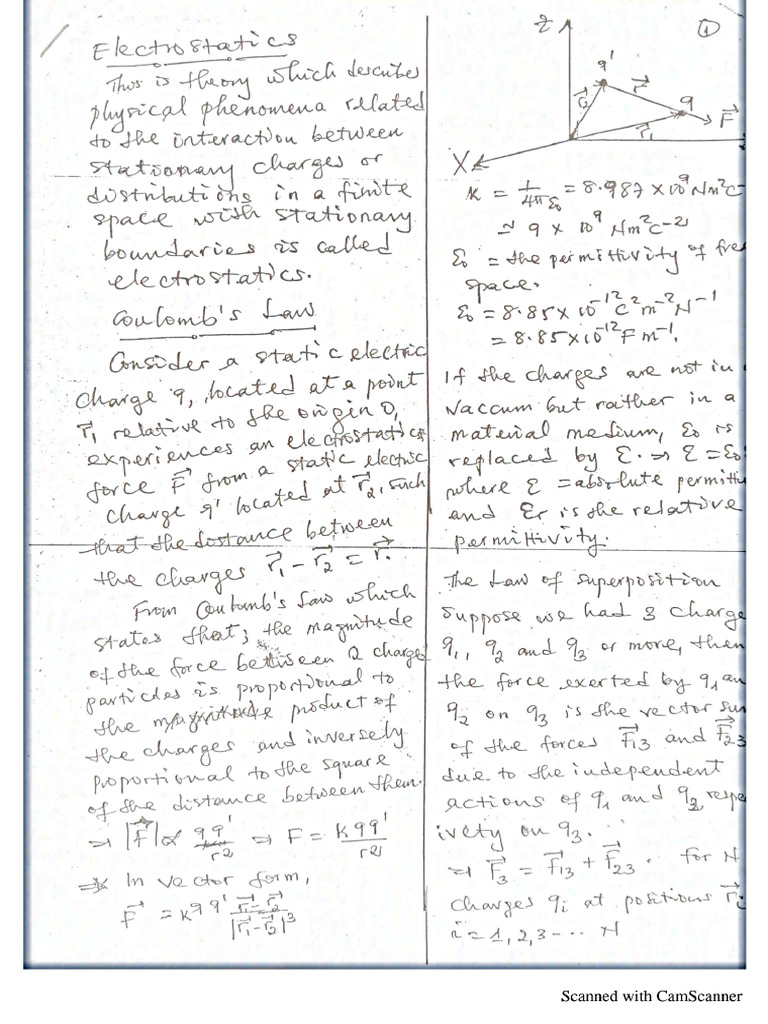 Electrostatics
This is theory which describes
physical phenomena related
to the interaction between
stationary charges or
distributions in a finite
space with stationary
boundaries is called
electrostatics.
Coulomb's Law
Consider a static electric
charge q, located at a point
r⃗₁ relative to the origin O,
experiences an electrostatic
force F⃗ from a static electric
charge q' located at r⃗₂, such
that the distance between
the charges r⃗₁ - r⃗₂ = r⃗.
From Coulomb's Law which
states that; the magnitude
of the force between 2 charged
particles is proportional to
the product of
the charges and inversely
proportional to the square
of the distance between them.
⇒ |F⃗| ∝ qq'/r² ⇒ F = Kqq'/r²
⇒ In vector form,
F⃗ = Kqq' (r⃗₁-r⃗₂)/|r⃗₁-r⃗₂|³
①
Z
q'
r⃗
r⃗₂
q
F⃗
r⃗₁
X
K = 1/4πε₀ = 8.987 × 10⁹ Nm²C-
≃ 9 × 10⁹ Nm²C-2
ε₀ = the permittivity of free
space.
ε₀ = 8.85 × 10⁻¹² C² m⁻² N⁻¹
= 8.85 × 10⁻¹² F m⁻¹.
If the charges are not in
vaccum but raither in a
material medium, ε₀ is
replaced by ε. ⇒ ε = ε₀
where ε = absolute permitti
and εr is the relative
permittivity.
The Law of superposition
suppose we had 3 charge
q₁, q₂ and q₃ or more, then
the force exerted by q₁ an
q₂ on q₃ is the vector sum
of the forces F⃗₁₃ and F⃗₂₃
due to the independent
actions of q₁ and q₂, respe
ivety on q₃.
⇒ F⃗₃ = F⃗₁₃ + F⃗₂₃. for N
charges qᵢ at positions r⃗ᵢ
i = 1, 2, 3 ---- N
Scanned with CamScanner